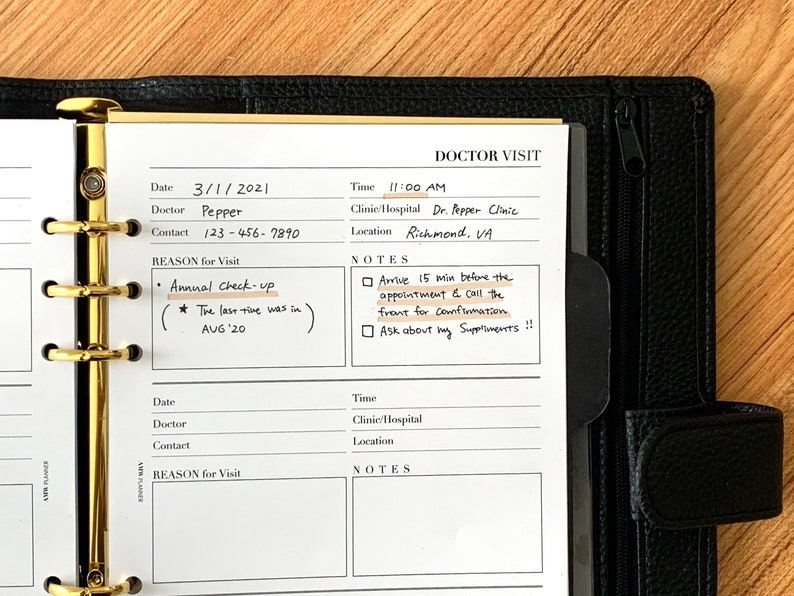 DOCTOR VISIT
Date 3/1/2021 Time 11:00 AM
Doctor Pepper Clinic/Hospital Dr. Pepper Clinic
Contact 123-456-7890 Location Richmond, VA
REASON for Visit
• Annual Check-up
( ★ The last time was in
AUG '20 )
NOTES
☐ Arrive 15 min before the
appointment & call the
front for comfirmation
☐ Ask about my Suppliments !!
Date Time
Doctor Clinic/Hospital
Contact Location
REASON for Visit
NOTES
AMW PLANNER
AMW PLANNER